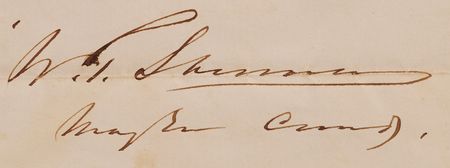 W. T. Sherman
Maj Gen Comdg.